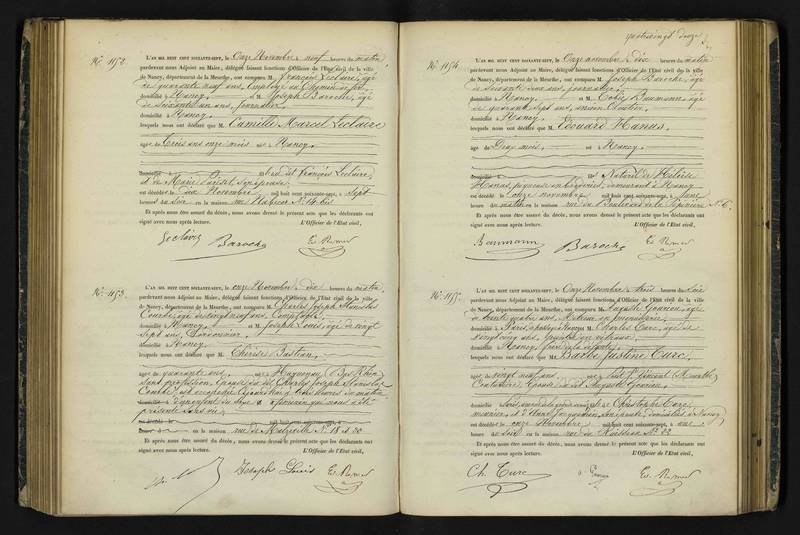 N° 1152 L'AN MIL HUIT CENT SOIXANTE-SEPT, le Onze Novembre à neuf heures du matin
pardevant nous Adjoint au Maire, délégué faisant fonctions d'Officier de l'Etat civil de la ville
de Nancy, département de la Meurthe, ont comparu M. François Leclaire, âgé
de quarante neuf ans, Employé au Chemin de fer,
domicilié à Nancy, et M. Joseph Baroche, âgé
de soixante un ans, journalier,
domicilié à Nancy,
lesquels nous ont déclaré que M. Camille Marcel Leclaire
âgé de trois ans onze mois né à Nancy,
domicilié à fils dudit François Leclaire,
et de Marie, son épouse,
est décédé le dix Novembre mil huit cent soixante-sept, à sept
heures du soir en la maison rue N° 14 bis
Et après nous être assuré du décès, nous avons dressé le présent acte que les déclarants ont
signé avec nous après lecture. L'Officier de l'Etat civil,
Leclaire Baroche
N° 1153 L'AN MIL HUIT CENT SOIXANTE-SEPT, le onze Novembre à dix heures du matin
pardevant nous Adjoint au Maire, délégué faisant fonctions d'Officier de l'Etat civil de la ville
de Nancy, département de la Meurthe, ont comparu M. Charles Joseph Stanislas
âgé de vingt neuf ans, Comptable,
domicilié à Nancy, et M. Joseph Louis, âgé de vingt
sept ans, Cordonnier,
domicilié à Nancy,
lesquels nous ont déclaré que M. Thérèse Bastian,
âgée de quarante ans, née à Haguenau (Bas Rhin)
sans profession, Epouse du dit Charles Joseph Stanislas
est accouchée aujourd'hui à trois heures du matin
d'un enfant du sexe féminin qui nous a été
présenté sans vie,
en la maison rue de Malzéville N° 18 et 20
Et après nous être assuré du décès, nous avons dressé le présent acte que les déclarants ont
signé avec nous après lecture. L'Officier de l'Etat civil,
Joseph Louis
quatre vingt douze
N° 1154 L'AN MIL HUIT CENT SOIXANTE-SEPT, le Onze novembre à dix heures du matin
pardevant nous Adjoint au Maire, délégué faisant fonctions d'Officier de l'Etat civil de la ville
de Nancy, département de la Meurthe, ont comparu M. Joseph Baroche, âgé
de soixante un ans, journalier,
domicilié à Nancy, et M. Baumann, âgé
de quarante sept ans, ancien
domicilié à Nancy,
lesquels nous ont déclaré que M. Edouard Hanus,
âgé de Dix mois, né à Nancy,
domicilié à fils Naturel de Héloïse
Hanus, piqueuse en bottines, demeurant à Nancy
est décédé le onze novembre mil huit cent soixante-sept, à une
heure du matin en la maison rue du Boulevard de la Pépinière N° 6
Et après nous être assuré du décès, nous avons dressé le présent acte que les déclarants ont
signé avec nous après lecture. L'Officier de l'Etat civil,
Baumann Baroche
N° 1155 L'AN MIL HUIT CENT SOIXANTE-SEPT, le Onze Novembre à trois heures du soir
pardevant nous Adjoint au Maire, délégué faisant fonctions d'Officier de l'Etat civil de la ville
de Nancy, département de la Meurthe, ont comparu M. Auguste, âgé
de trente quatre ans,
domicilié à Paris, et M. Charles Turc, âgé de
vingt cinq ans, peintre en vitraux,
domicilié à Nancy, frère de la défunte,
lesquels nous ont déclaré que Me Barbe Justine Turc,
âgée de vingt neuf ans, née à (Meurthe)
Couturière, Epouse du dit Auguste
Christophe Turc,
domiciliés à Nancy
est décédée le onze Novembre mil huit cent soixante-sept, à une
heure du soir en la maison rue du N° 23
Et après nous être assuré du décès, nous avons dressé le présent acte que les déclarants ont
signé avec nous après lecture. L'Officier de l'Etat civil,
Ch. Turc